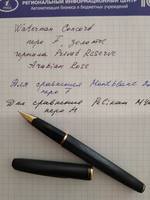 РЕГИОНАЛЬНЫЙ ИНФОРМАЦИОННЫЙ ЦЕНТР
Waterman Concord
перо F, золотое
чернила Private Reserve
Arabian Rose
Для сравнения Montblanc
перо F
Для сравнения Pelikan
перо M